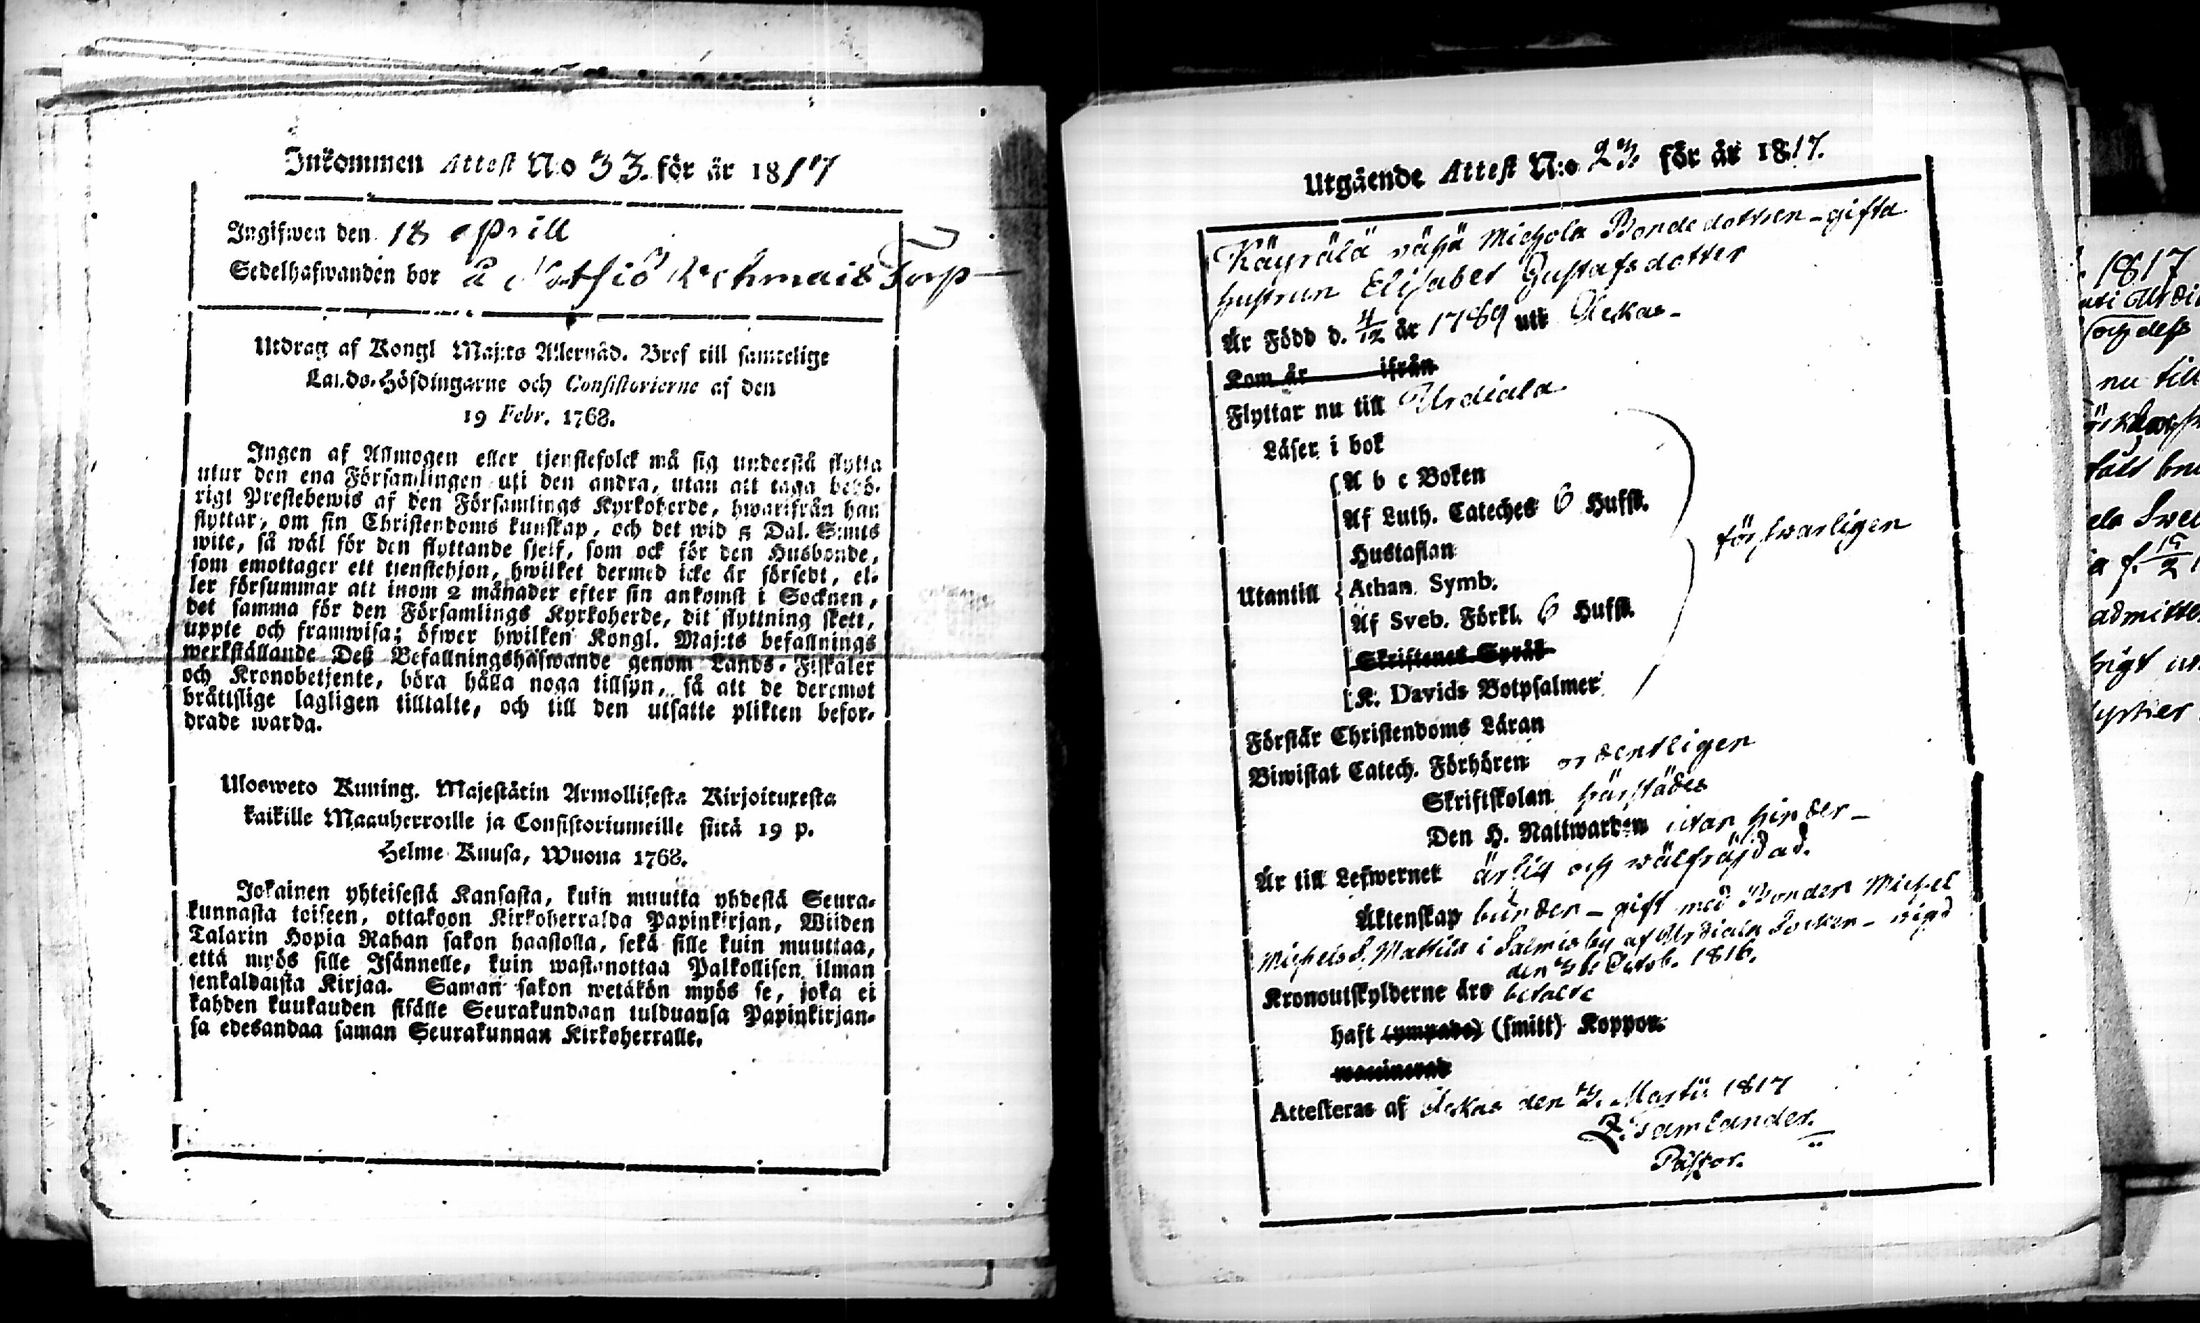 Inkommen Attest No 33. för år 1817
Ingifwen den 18 aprill
Sedelhafwanden bor å Torp
Utdrag af Kongl Maj:ts Allernåd. Bref till samtelige
Lands-Höfdingarne och Consistorierne af den
19 Febr. 1768.
Ingen af Allmogen eller tjenstefolck må sig understå flytta
utur den ena Församlingen uti den andra, utan att taga behö-
rigt Prestebewis af den Församlings Kyrkoherde, hwarifrån han
flyttar, om sin Christendoms kunskap, och det wid 5 Dal. S:mts
wite, så wäl för den flyttande sjelf, som ock för den Husbonde,
som emottager ett tienstehjon, hwilket dermed icke är försedt, el-
ler försummar att inom 2 månader efter sin ankomst i Socknen,
det samma för den Församlings Kyrkoherde, dit flyttning skett,
uppte och framwisa; öfwer hwilken Kongl. Maj:ts befallnings
werkställande Deß Befallningshafwande genom Lands-Fiskaler
och Kronobetjente, böra hålla noga tillsyn, så att de deremot
bråttslige lagligen tilltalte, och till den utsatte plikten befor-
drade warda.
Ulosweto Kuning. Majestätin Armollisesta Kirjoituxesta
kaikille Maauherroille ja Consistoriumeille siitä 19 p.
Helme Kuusa, Wuona 1768.
Jokainen yhteisestä Kansasta, kuin muutta yhdestä Seura-
kunnasta toiseen, ottakoon Kirkoherralda Papinkirjan, Wiiden
Talarin Hopia Rahan sakon haastolla, sekä sille kuin muuttaa,
että myös sille Isännelle, kuin wastanottaa Palkollisen ilman
senkaldaista Kirjaa. Saman sakon wetäkön myös se, joka ei
kahden kuukauden sisälle Seurakundaan tulduansa Papinkirjan-
sa edesandaa saman Seurakunnan Kirkoherralle.
Utgående Attest N:o 23. för år 1817.
Käyrälä wähä Michola Bondedottren - gifta
hustrun Elisabet Gustafsdotter
Är Född d. 4/12 år 1789 uti Ackas -
Kom år ifrån
Flyttar nu till Urdiala
Läser i bok
A b c Boken
Af Luth. Cateches 6 Hufst.
Hustaflan
försvarligen
Utantill
Athan. Symb.
Af Sveb. Förkl. 6 Hufst.
Skriftenes Språk
K. Davids Botpsalmer
Förstår Christendoms Läran
Biwistat Catech. Förhören ordentligen
Skriftskolan härstädes
Den H. Nattwarden utan hinder -
Är till Lefwernet ärlig och wälfräjdad.
Äktenskap bunden - gift med Bonden Michel
Michels S. Mattila i Salmis by af Urdiala Socken - vigd
den Octob. 1816.
Kronoutskylderne äro betalte
haft (ympade) (smitt) Koppor.
waccinerad
Attesteras af Ackas den 3. Martii 1817
Pastor.
1817
nu till
admitte